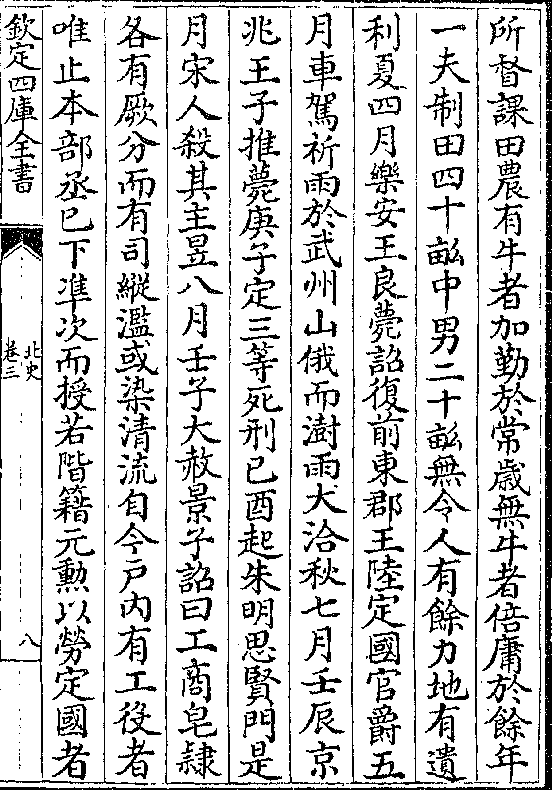 所督課田農有牛者加勤於常歲無牛者倍庸於餘年
一夫制田四十畝中男二十畝無令人有餘力地有遺
利夏四月樂安王良薨詔復前東郡王陸定國官爵五
月車駕祈雨於武州山俄而澍雨大洽秋七月壬辰京
兆王子推薨庚子定三等死刑已酉起朱明思賢門是
月宋人殺其主昱八月壬子大赦景子詔曰工商皂隸
各有厥分而有司縱濫或染清流自今戸內有工役者
唯止本部丞已下準次而授若階籍元勲以勞定國者
欽定四庫全書
北史
卷三
八